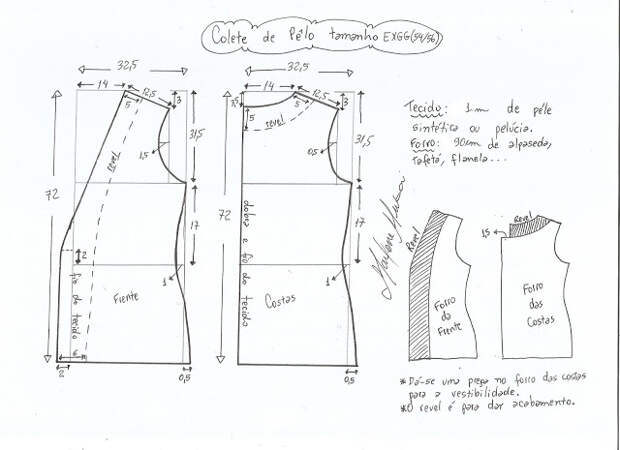 Colete de Pêlo tamanho EXGG(54/56)
32,5
14
12,5
3
5
revel
1,5
31,5
72
17
2
1
fio do tecido
Frente
6
2
0,5
32,5
14
12,5
3
5
5
revel
0,5
31,5
72
dobra e fio do tecido
17
1
Costas
0,5
Tecido: 1m de pêle
sintética ou pelúcia.
Forro: 90cm de alpaseda,
tafetá, flanela...
Marlene Mukai
Revel
Forro
da
Frente
Revel
1,5
Forro
das
Costas
*Dá-se uma prega no forro das costas
para a vestibilidade.
*O revel é para dar acabamento.